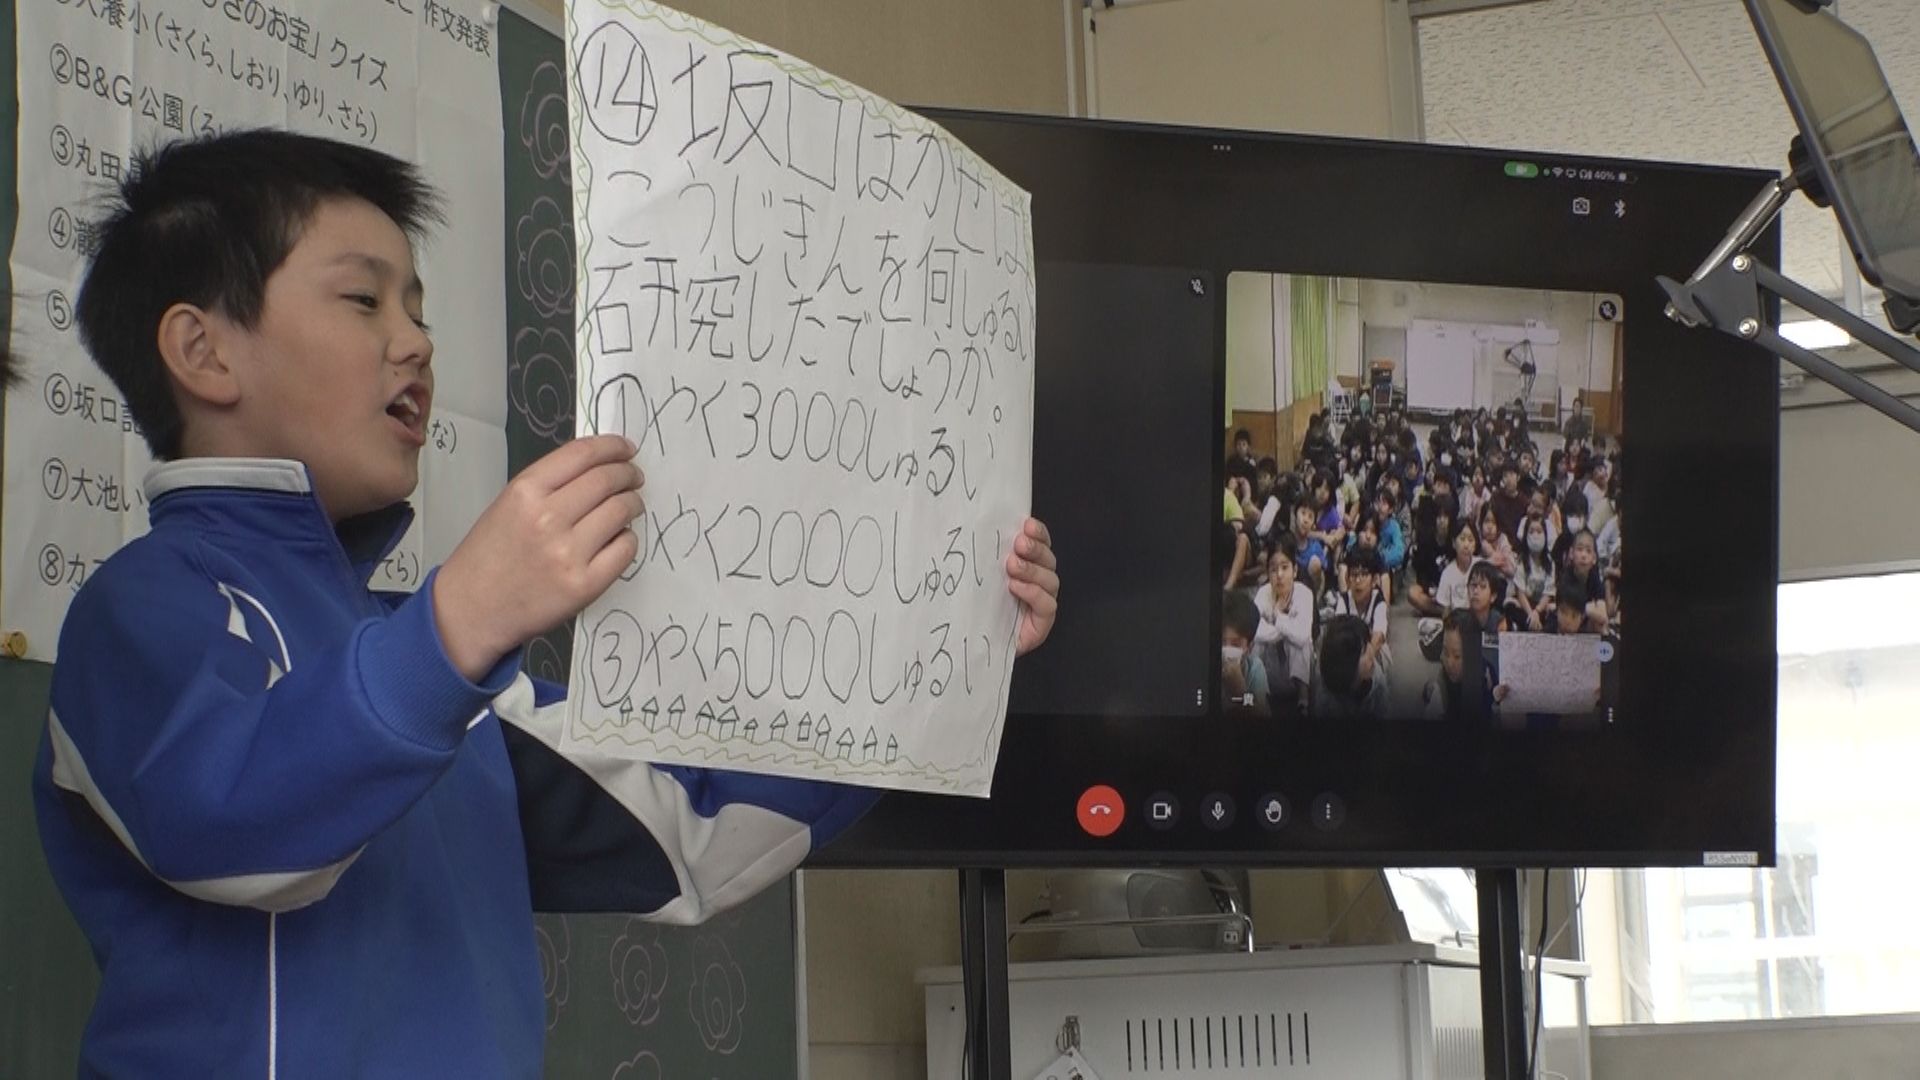 作文発表
のお宝」クイズ
小(さくら、しおり、ゆり、さら)
②B&G公園(る
③丸田
④
⑤
⑥坂口
な)
⑦大池い
⑧カ
てら)
⑭坂口はかせは
こうじきんを何しゅるい
研究したでしょうか。
①やく3000しゅるい
②やく2000しゅるい
③やく5000しゅるい
40%
一貴